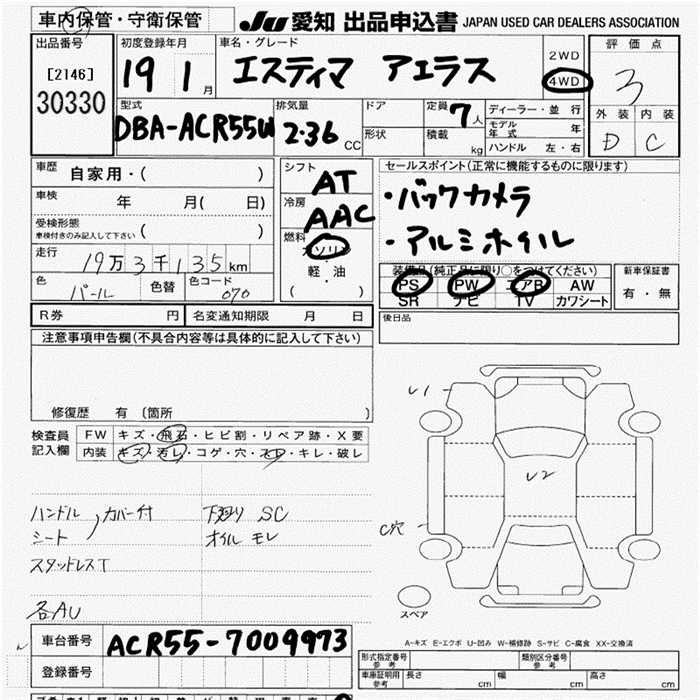 車内保管・守衛保管
Ju 愛知 出品申込書 JAPAN USED CAR DEALERS ASSOCIATION
出品番号
[2146]
30330
初度登録年月
19 1月
車名・グレード
エスティマ アエラス
2WD
4WD
評価点
3
外装 内装
D C
型式
DBA-ACR55W
排気量
2.36 CC
ドア
形状
定員 7人
積載 kg
ディーラー・並行
モデル年式 年
ハンドル 左・右
車歴
自家用・( )
車検 年 月( 日)
受検形態
車検付きのみ記入して下さい ( )
走行 19万3千135km
色 パール 色替 色コード 070
シフト AT
冷房 AAC
燃料
ガソリン
軽・油
( )
セールスポイント(正常に機能するものに限ります)
・バックカメラ
・アルミホイル
装備品(純正品に限り○をつけてください)
PS PW エアB AW
SR ナビ TV カワシート
新車保証書
有・無
R券 円 名変通知期限 月 日
後日品
注意事項申告欄(不具合内容等は具体的に記入して下さい)
修復歴 有 〔箇所 〕
検査員記入欄
FW キズ・飛石・ヒビ割・リペア跡・X要
内装 キズ・汚レ・コゲ・穴・スレ・キレ・破レ
ハンドル
シート
カバー付
スタッドレスT
各AU
下廻り SC
オイル モレ
U1
U2
C穴
スペア
A-キズ E-エクボ U-凹み W-補修跡 S-サビ C-腐食 XX-交換済
車台番号 ACR55-7009973
登録番号
形式指定番号 参考
類別区分番号 参考
車庫証明用 参考 長さ cm 幅 cm 高さ cm